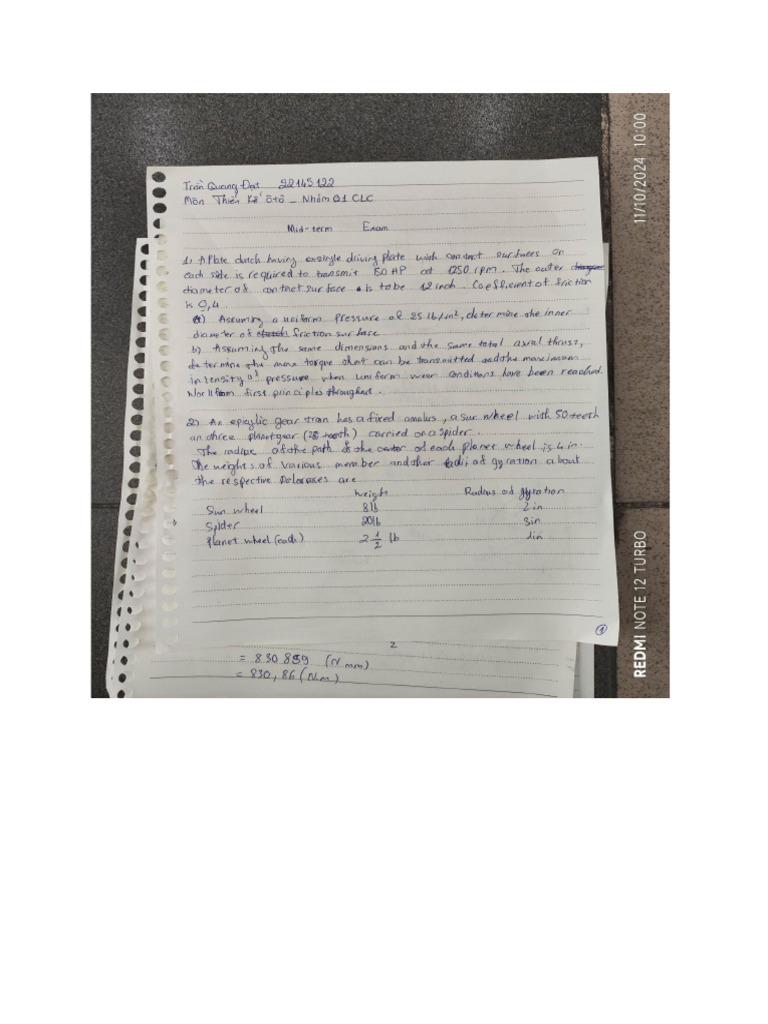 Trần Quang Đạt 22145122
Môn Thiết Kế Ôtô - Nhóm 01 CLC
Mid-term Exam
1) A Plate clutch having a single driving plate with contact surfaces on
each side is required to transmit 150 HP at 1250 rpm. The outer
diameter of contact surface is to be 12 inch. Coefficient of friction
is 0,4.
a) Assuming a uniform pressure of 25 lb/in², determine the inner
diameter of clutch friction surface
b) Assuming the same dimensions and the same total axial thrust,
determine the max torque that can be transmitted and the maximum
intensity of pressure when uniform wear conditions have been reached.
from first principles throughout.
2) An epicylic gear train has a fixed annulus, a sun wheel with 50 teeth
an three planet gear (25 teeth) carried on a spider.
The radius of the path of the center of each planer wheel is 4 in.
The weights of various member and their radii of gyration about
the respective axes are
weight Radius of gyration
Sun wheel 8lb 2in
Spider 20lb 3in
Planet wheel (each) 2 1/2 lb 1in
1
2
= 830 859 (N mm)
= 830,86 (N.m)
11/10/2024 10:00
REDMI NOTE 12 TURBO